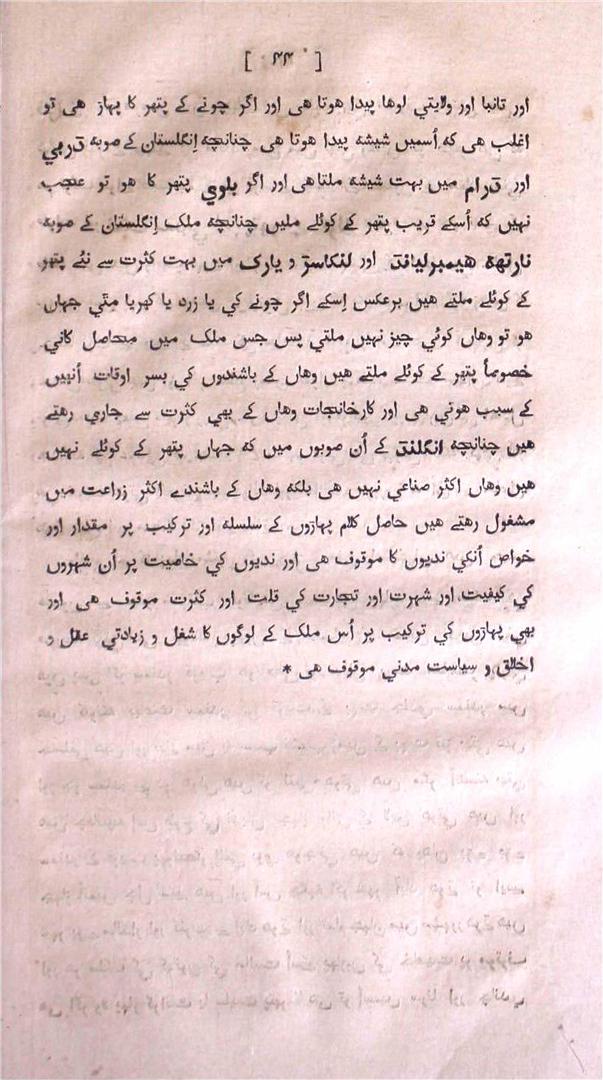 [ ۴۴ ]
اور تانبا اور ولايتي لوها پيدا هوتا هى اور اگر چونے كے پتهر كا پهاڑ هى تو
اغلب هى كه اُسميں شيشه پيدا هوتا هى چنانچه اِنگلستان كے صوبه ڈربي
اور ڈرام ميں بهت شيشه ملتا هى اور اگر بلوي پتهر كا هو تو عجب
نهيں كه اُسكے قريب پتهر كے كوئلے مليں چنانچه ملك اِنگلستان كے صوبه
نارتهه هيمبرليانڈ اور لنكاسڑ و يارك ميں بهت كثرت سے نئے پتهر
كے كوئلے ملتے هيں برعكس اِسكے اگر چونے كي يا زرد يا كهريا مٹي جهاں
هو تو وهاں كوئي چيز نهيں ملتي پس جس ملك ميں محاصل كاني
خصوصاً پتهر كے كوئلے ملتے هيں وهاں كے باشندوں كي بسر اوقات اُنهيں
كے سبب هوتي هى اور كارخانجات وهاں كے بهي كثرت سے جاري رهتے
هيں چنانچه انگلنڈ كے اُن صوبوں ميں كه جهاں پتهر كے كوئلے نهيں
هيں وهاں اكثر صناعي نهيں هى بلكه وهاں كے باشندے اكثر زراعت ميں
مشغول رهتے هيں حاصل كلام پهاڑوں كے سلسله اور تركيب پر مقدار اور
خواص اُنكي نديوں كا موقوف هى اور نديوں كي خاصيت پر اُن شهروں
كي كيفيت اور شهرت اور تجارت كي قلت اور كثرت موقوف هى اور
بهي پهاڑوں كي تركيب پر اُس ملك كے لوگوں كا شغل و زيادتي عقل و
اخلاق و سياست مدني موقوف هى *